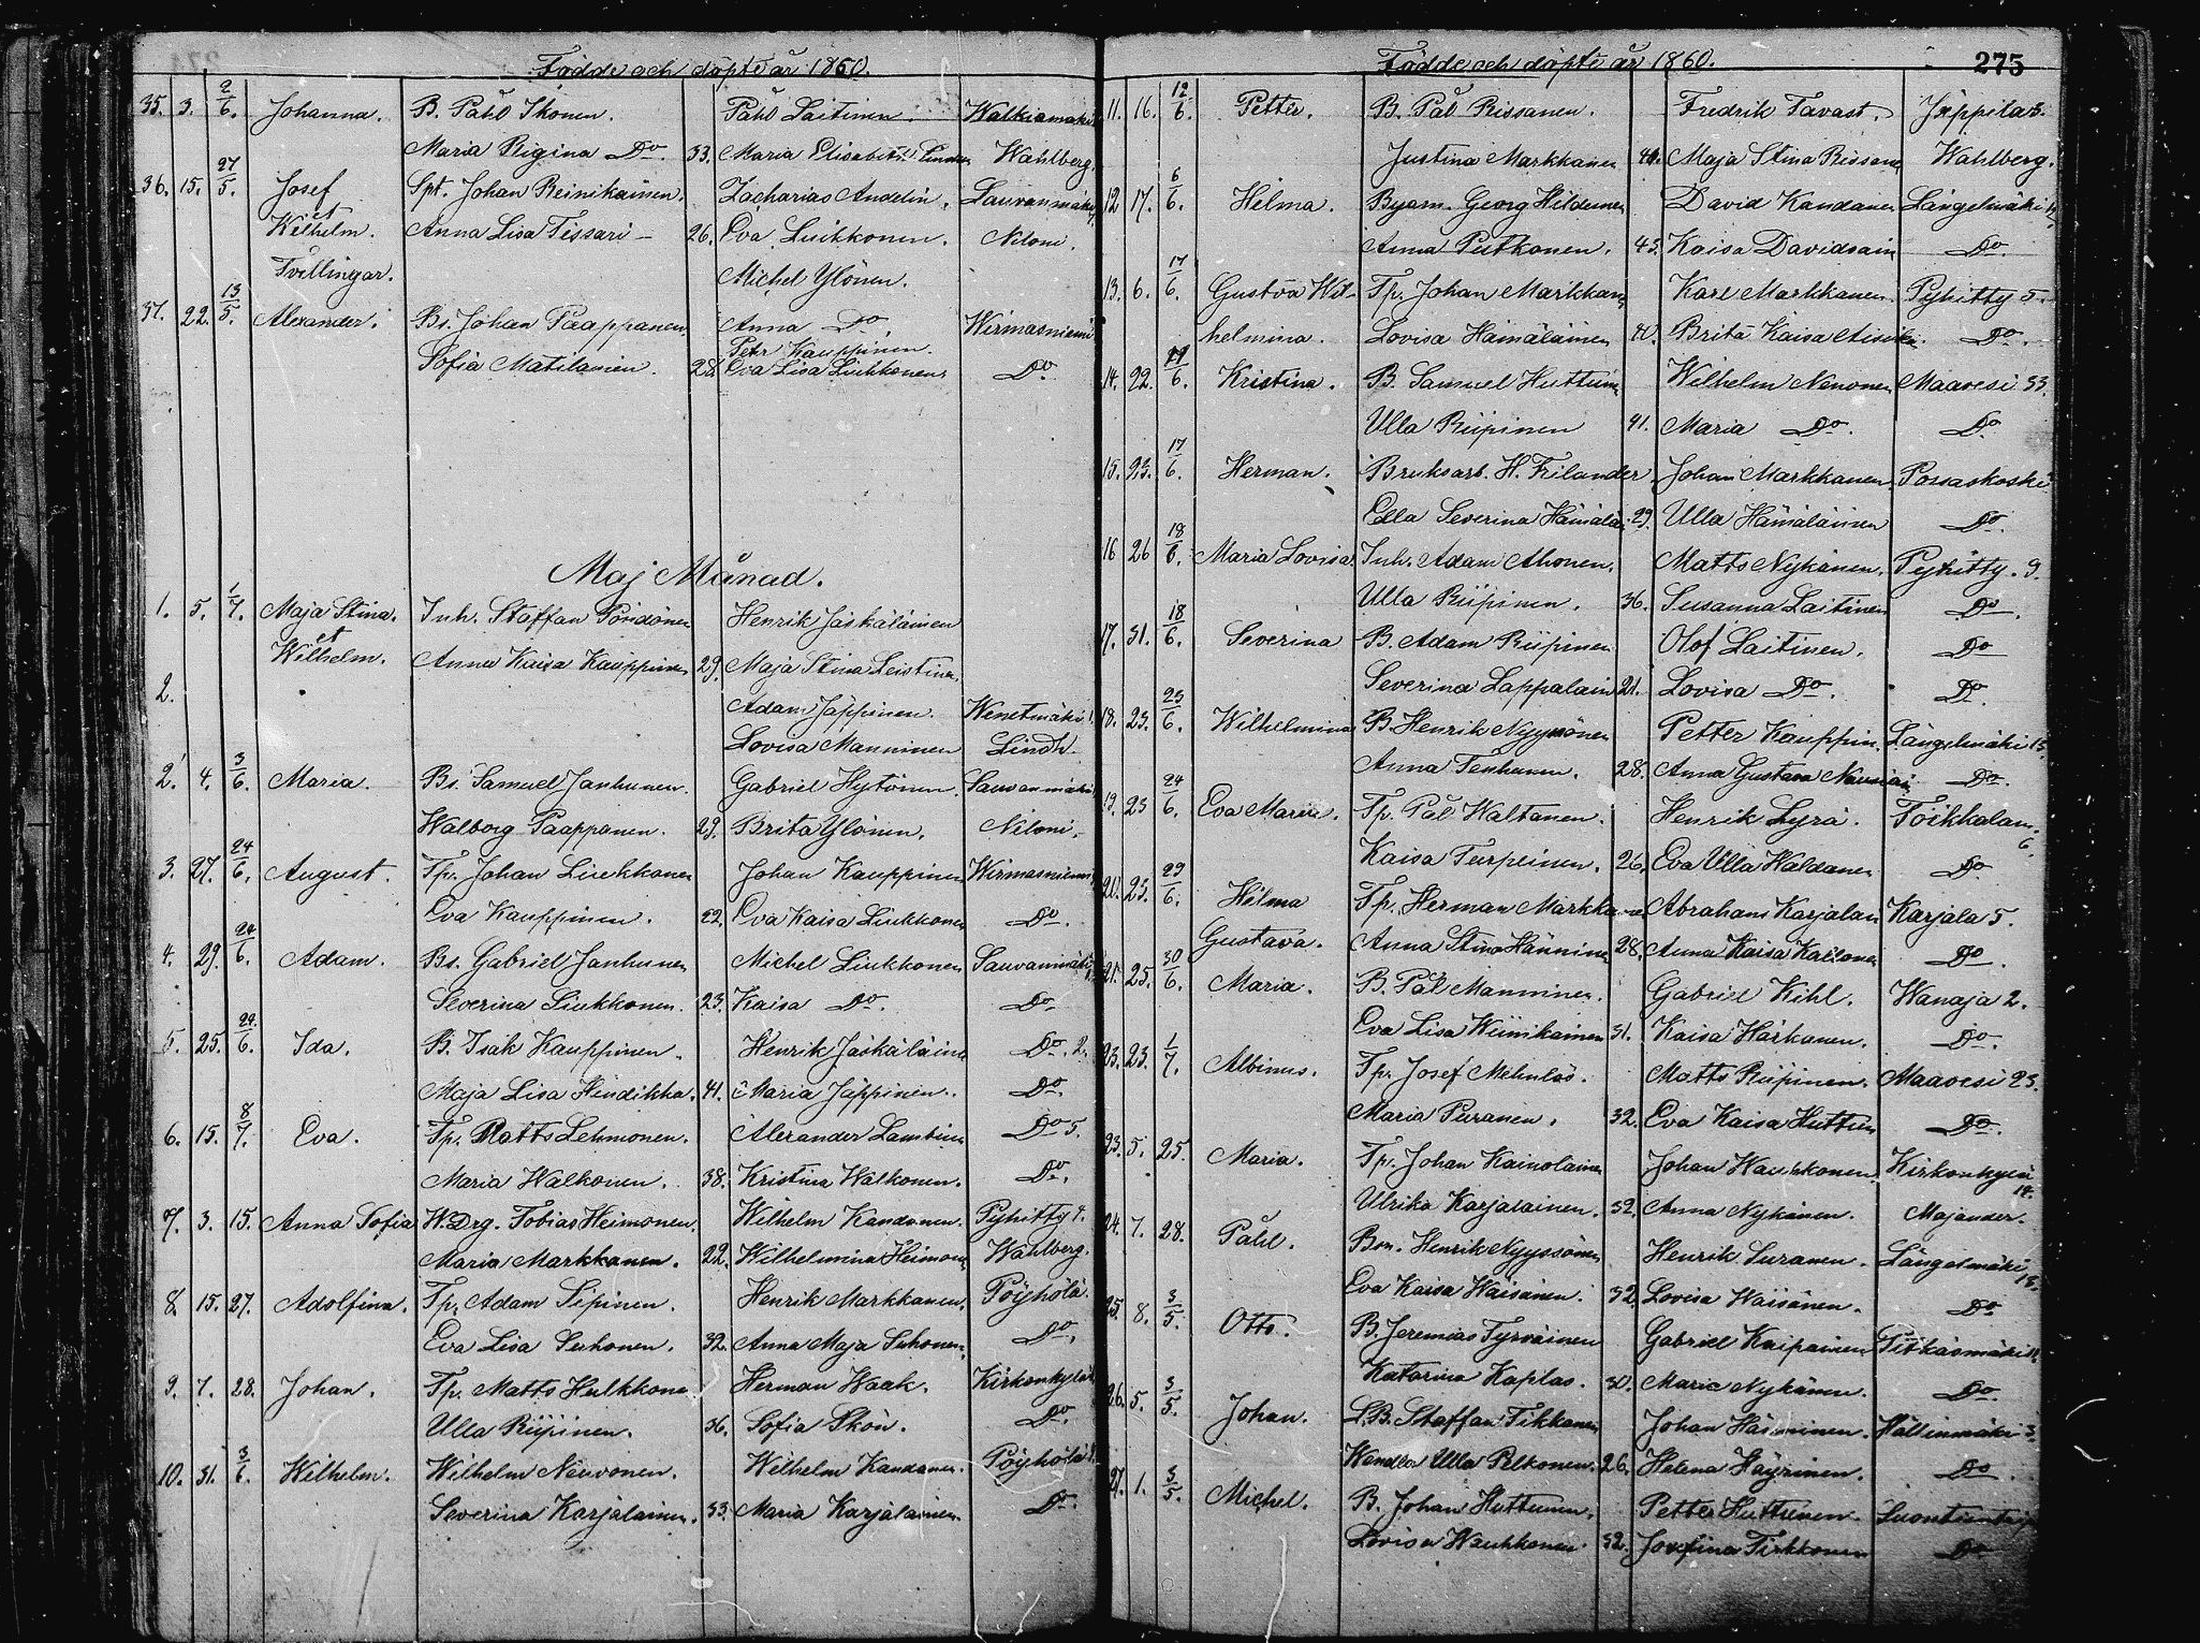 Födde och döpte år 1860.
35. 3. 2/6. Johanna. B. Påhl Ikonen. Påhl Laitinen. Walkiamäki
Maria Regina Do. 33. Maria Elisabeth Wahlberg.
36. 15. 27/5. Josef Spt. Johan Reinikainen. Zacharias Andelin. Sauvanmäki
et Wilhelm. Anna Lisa Tissari 26. Eva Liukkonen. Niloni.
Tvillingar. Michel Ylönen.
37. 22. 13/5. Alexander. Bs. Johan Paappanen. Anna Do. Wirmasniemi
Petr Kauppinen.
Sofia Matilainen. 28. Eva Lisa Liukkonen. Do
Maj Månad.
1. 5. 1/7. Maja Stina. Inh. Staffan Pöndönen Henrik Jäskäläinen
et Wilhelm. Anna Kaisa Kauppinen 29. Maja Stina Leistinen.
2. Adam Jäppinen. Wenetmäki 1.
Lovisa Manninen Lindh.
2. 4. 3/6. Maria. Bs. Samuel Janhunen. Gabriel Hytönen. Sauvanmäki
Walborg Paappanen. 29. Brita Ylönen. Niloni.
3. 27. 24/6. August. Tp. Johan Liukkonen Johan Kauppinen Wirmasniemi
Eva Kauppinen. 22. Eva Kaisa Liukkonen Do.
4. 29. 24/6. Adam. Bs. Gabriel Janhunen Michel Liukkonen Sauvanmäki
Severina Liukkonen. 23. Kaisa Do. Do.
5. 25. 24/6. Ida. B. Isak Kauppinen. Henrik Jäskäläine Do. 2.
Maja Lisa Hindikka. 41. Maria Jäppinen. Do.
6. 15. 8/7. Eva. Tp. Matts Lehmonen. Alexander Lambius Do 5.
Maria Walkonen. 38. Kristina Walkonen. Do.
7. 3. 15. Anna Sofia W.Drg. Tobias Heimonen. Wilhelm Kandanen. Pyhitty 4.
Maria Markkanen. 22. Wilhelmina Heimonen Wahlberg.
8. 15. 27. Adolfina. Tp. Adam Sipinen. Henrik Markkanen. Pöyhölä.
Eva Lisa Serhonen. 32. Anna Maja Serhonen. Do.
9. 7. 28. Johan. Tp. Matts Hulkkone Herman Waak. Kirkonkylä
Ulla Riipinen. 36. Sofia Skön. Do.
10. 31. 3/6. Wilhelm. Wilhelm Neuvonen. Wilhelm Kandanen. Pöyhölä
Severina Karjalainen. 33. Maria Karjalainen. Do.
Födde och döpte år 1860. 275
11. 16. 12/6. Petter. B. Pål Rissanen. Fredrik Tavast. Jäppilä 3.
Justina Markkanen 44. Maja Stina Rissane Wahlberg.
12 17. 6/6. Helma. Byam. Georg Hildenen David Kandanen Längelmäki
Anna Putkonen. 43. Kaisa Davidsain Do.
13. 6. 17/6. Gustva Wil- Tp. Johan Markkan Karl Markkanen. Pyhitty 5.
helmina. Lovisa Hämäläinen 40. Brita Kaisa Do.
14. 22. /6. Kristina. B. Samuel Huttune Wilhelm Nenonen Maavesi 33.
Ulla Riipinen 41. Maria Do. Do
15. 23. 17/6. Herman. Bruksarb. H. Frilander Johan Markkanen. Possaskoski
Ella Severina Hämälä 29. Ulla Hämäläinen Do
16 26 18/6. Maria Lovisa. Inh. Adam Ahonen. Matts Nykänen. Pyhitty. 9.
Ulla Riipinen. 36. Susanna Laitinen Do.
17. 31. 18/6. Severina B. Adam Riipinen Olof Laitinen. Do
Severina Lappalain 21. Lovisa Do. Do.
18. 23. 23/6. Wilhelmina B. Henrik Nyyssönen Petter Kauppin. Längelmäki 13.
Anna Tenhunen. 28. Anna Gustava Do.
19. 23 24/6. Eva Maria. Tp. Pål Waltanen. Henrik Lyrä. Toikkalam. 6.
Kaisa Turpeinen. 26. Eva Ulla Waldanen Do
20. 25. 29/6. Hilma Tp. Herman Markkanen Abraham Karjalain Karjala 5.
Gustava. Anna Stina Hänninen 28. Anna Kaisa Kaksonen Do.
21. 25. 30/6. Maria. B. Pål Manninen. Gabriel Kihl. Wanaja 2.
Eva Lisa Wiinikainen 31. Kaisa Härkänen. Do.
23. 23. 1/7. Albinus. Tp. Josef Mehnlös. Matts Riipinen. Maavesi 23.
Maria Puranen. 32. Eva Kaisa Huttun Do.
23. 5. 25. Maria. Tp. Johan Kainolainen Johan Wauhkonen Kirkonkylä 14.
Ulrika Karjalainen. 32. Anna Nykänen. Majander.
24. 7. 28. Påhl. Bon. Henrik Nyyssönen Henrik Suranen. Längelmäki 13.
Eva Kaisa Waisänen. 32 Lovisa Waisänen. Do
25. 8. 3/5. Otto. B. Jeremias Tyrväinen Gabriel Kaipainen Titkäsmäki
Katarina Kaplas. 30. Maria Nykänen. Do.
26. 5. 3/5. Johan. S.B. Staffan Tikkanen Johan Häyrinen. Hällinmäki 3.
Wendla Ulla Pelkonen. 26. Helena Häyrinen. Do.
27. 1. 3/5. Michel. B. Johan Huttunen. Petter Huttunen.
Lovisa Wauhkonen. 32. Josefina Tirkkonen Do